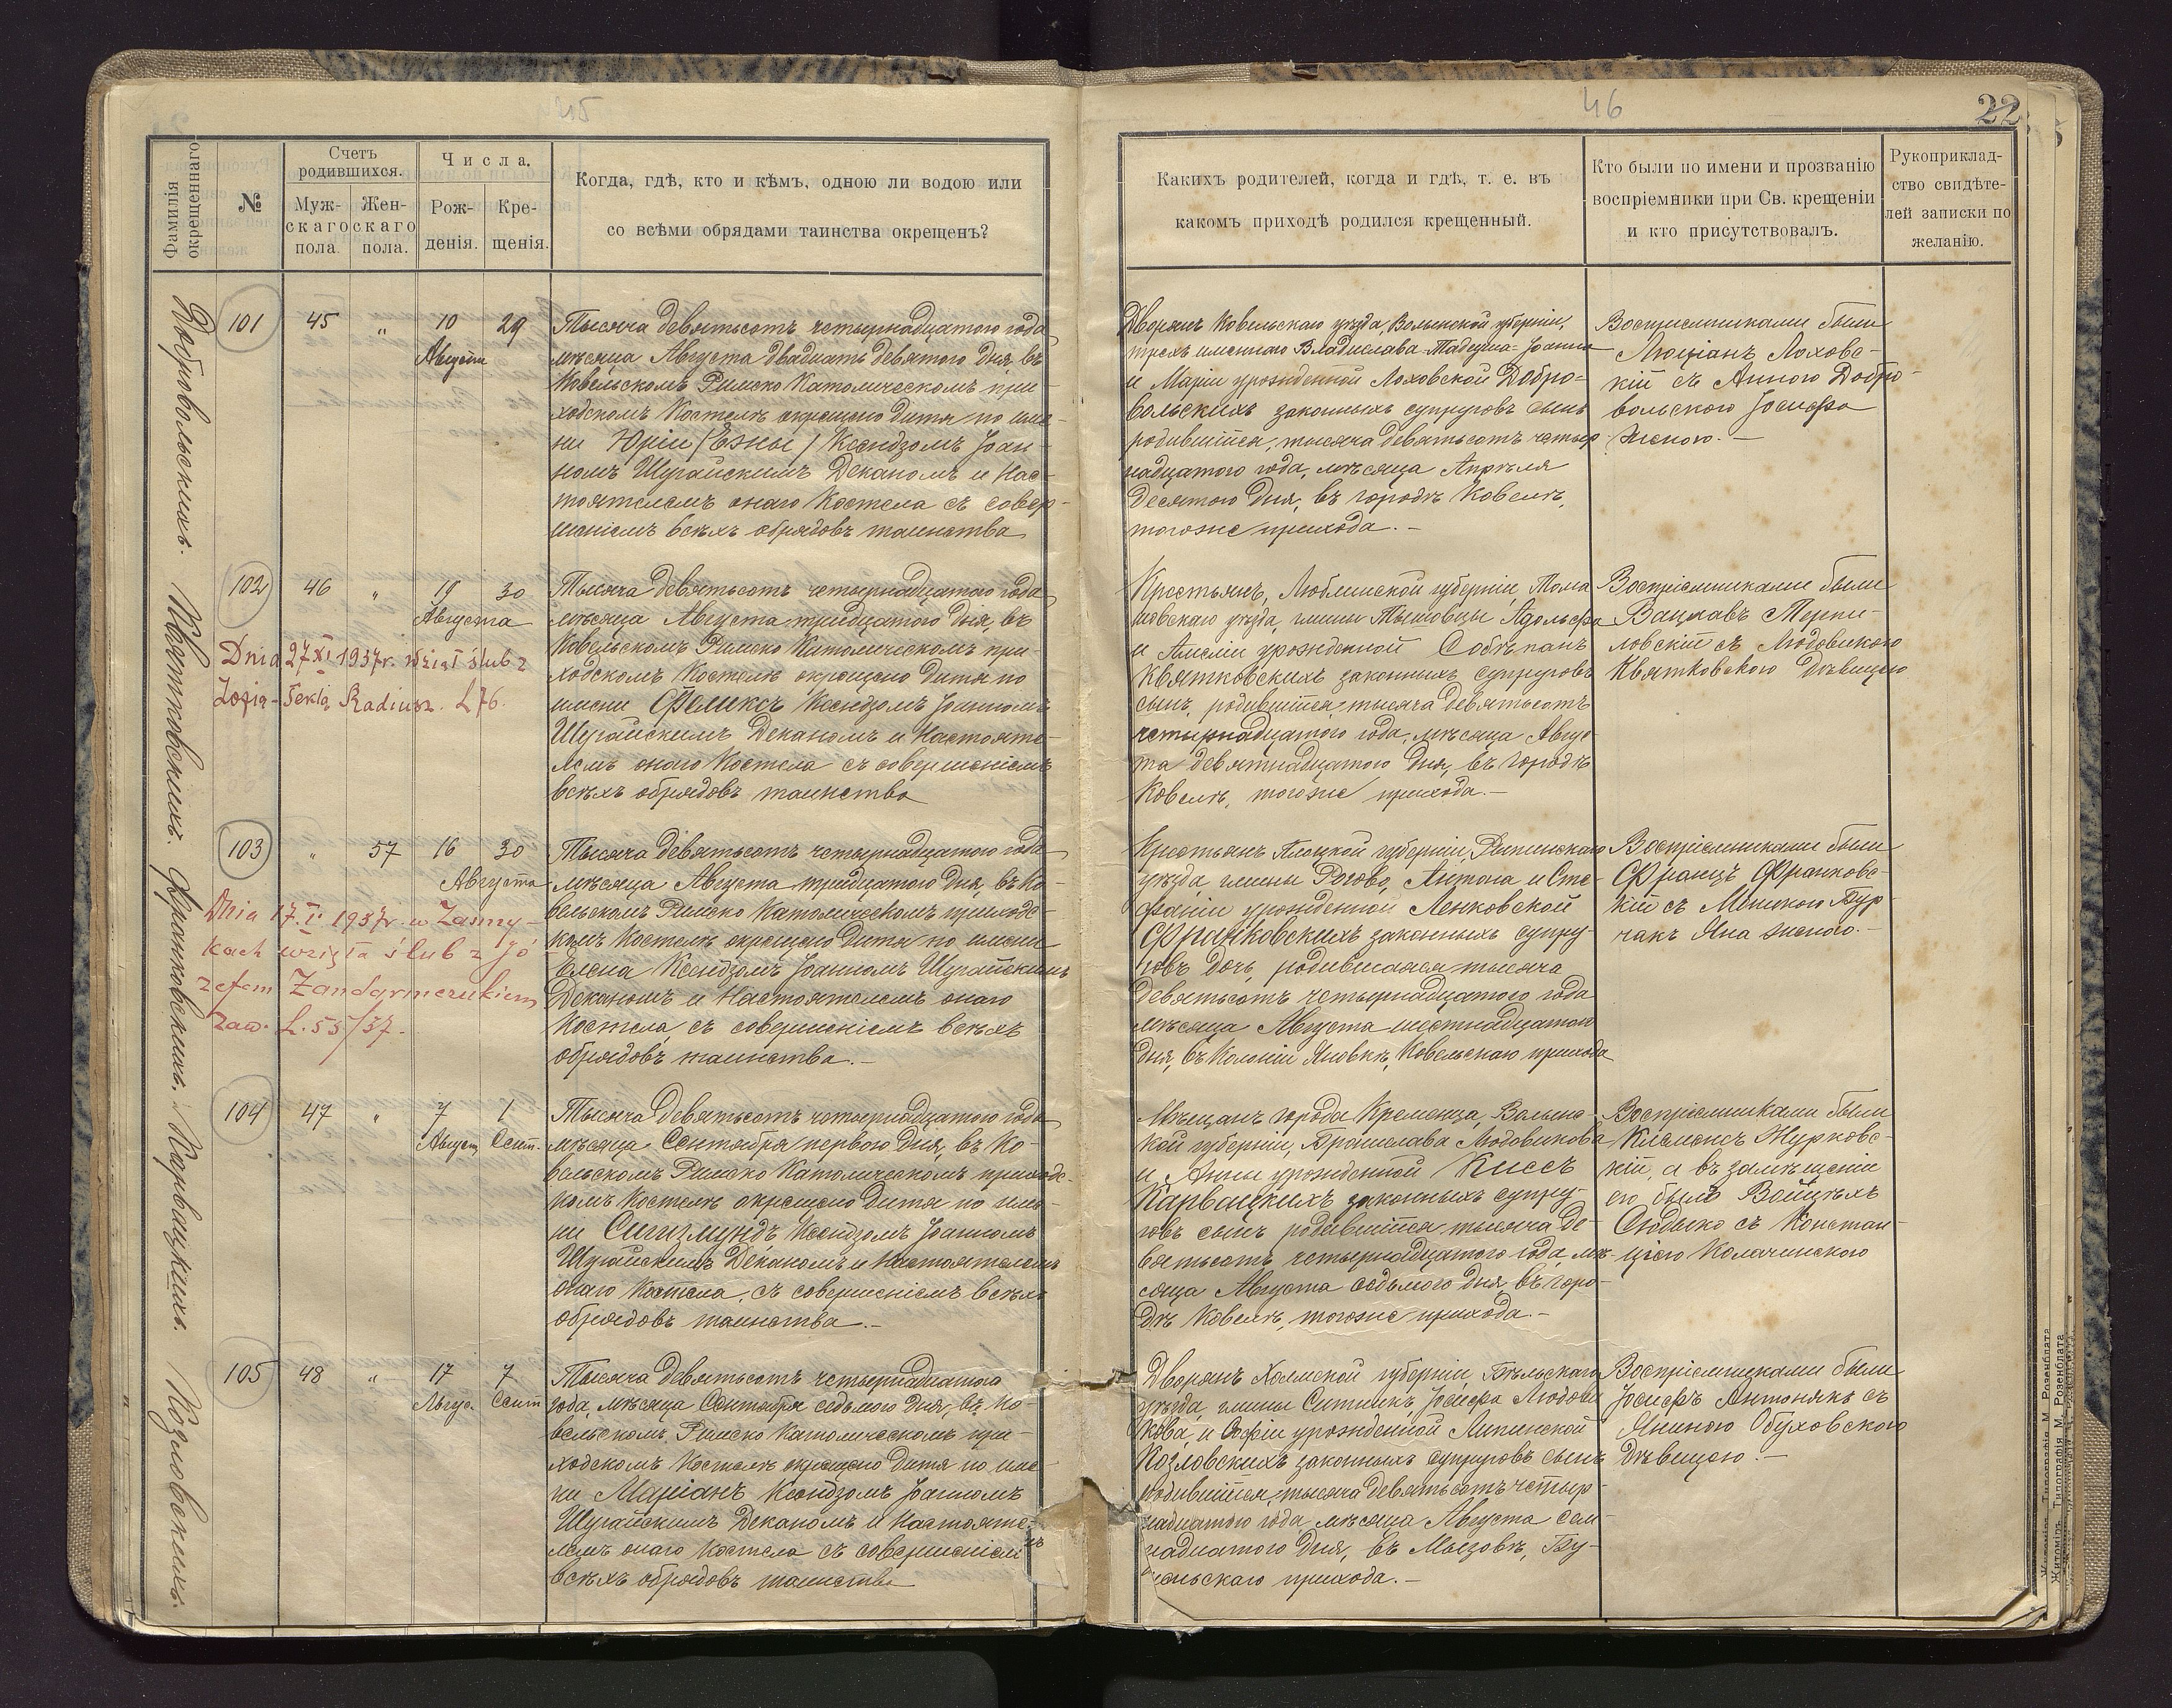 45
Фамилія окрещеннаго
№
Счетъ родившихся.
Мужскаго пола.
Женскаго пола.
Числа.
Рожденія.
Крещенія.
Когда, гдѣ, кто и кѣмъ, одною ли водою или
со всѣми обрядами таинства окрещенъ?
Добровольскихъ.
101 45 „ 10 29
Августа
Тысяча девятьсотъ четырнадцатого года
мѣсяца Августа двадцать девятого дня, въ
Ковельскомъ Римско Католическомъ при-
ходскомъ Костелѣ окрещено дитя по име-
ни Юрій (Ежи) Ксендзомъ Іоан-
номъ Шурайскимъ Деканомъ и Нас-
тоятелемъ онаго Костела съ совер-
шеніемъ всѣхъ обрядовъ таинства
Квятковскихъ.
102 46 „ 19 30
Августа
Dnia 27 XI 1937r. wziął ślub z
Zofią-Teklą Radiusz. L 76.
Тысяча девятьсотъ четырнадцатого года
мѣсяца Августа тридцатого дня, въ
Ковельскомъ Римско Католическомъ при-
ходскомъ Костелѣ окрещено дитя по
имени Феликсъ Ксендзомъ Іоанномъ
Шурайскимъ Деканомъ и Настояте-
лемъ онаго Костела съ совершеніемъ
всѣхъ обрядовъ таинства
Франковскихъ.
103 „ 57 16 30
Августа
Dnia 17. I. 1937r. w Zasmy-
kach wzięła ślub z Jó
zefem Zandarmerukiem
zaw. L. 55/37.
Тысяча девятьсотъ четырнадцатого года
мѣсяца Августа тридцатого дня, въ Ко-
вельскомъ Римско Католическомъ приходс-
комъ Костелѣ окрещено дитя по имени
Елена Ксендзомъ Іоанномъ Шурайскимъ
Деканомъ и Настоятелемъ онаго
Костела, съ совершеніемъ всѣхъ
обрядовъ таинства.-
Карвацкихъ.
104 47 „ 7 1
Август Сент.
Тысяча девятьсотъ четырнадцатого года
мѣсяца Сентября первого дня, въ Ко-
вельскомъ Римско Католическомъ приходс-
комъ Костелѣ окрещено дитя по име-
ни Сигизмундъ Ксендзомъ Іоанномъ
Шурайскимъ Деканомъ и Настоятелемъ
онаго Костела, съ совершеніемъ всѣхъ
обрядовъ таинства.-
Козловскихъ.
105 48 „ 17 7
Авгус. Сент
Тысяча девятьсотъ четырнадцатого
года, мѣсяца Сентября седьмого дня, въ Ко-
вельскомъ Римско Католическомъ при-
ходскомъ Костелѣ окрещено дитя по име-
ни Маріанъ Ксендзомъ Іоанномъ
Шурайскимъ Деканомъ и Настояте-
лемъ онаго Костела съ совершеніемъ
всѣхъ обрядовъ таинства
46
22
Какихъ родителей, когда и гдѣ, т. е. въ
какомъ приходѣ родился крещенный.
Кто были по имени и прозванію
воспріемники при Св. крещеніи
и кто присутствовалъ.
Рукоприклад-
ство свидѣте-
лей записки по
желанію.
Дворянъ Ковельскаго уѣзда, Волынской губерніи,
трехъ именнаго Владислава-Тадеуша-Іоанна
и Маріи урожденной Лоховской Добро-
вольскихъ законныхъ супруговъ сынъ
родившійся, тысяча девятьсотъ четыр
надцатого года, мѣсяца Апрѣля
десятого дня, въ городѣ Ковелѣ,
тогоже прихода.-
Воспріемниками были
Люціанъ Лоховс-
кій съ Анною Добро-
вольского Іосифа
женою.-
Крестьянъ, Люблинской губерніи, Тома
шовскаго уѣзда, гмины Тышовцы Адольфа
и Амеліи урожденной Собѣпанъ
Квятковскихъ законныхъ супруговъ
сынъ, родившійся, тысяча девятьсотъ
четырнадцатого года, мѣсяца Авгус-
та девятнадцатого дня, въ городѣ
Ковелѣ, тогоже прихода.-
Воспріемниками были
Вацлавъ Терпи-
ловскій съ Людовикою
Квятковскою дѣвицею
Крестьянъ Плоцкой губерніи, Рыпинскаго
уѣзда гмины Рогово, Антона и Сте-
фаніи урожденной Ленковской
Франковскихъ законныхъ супру-
говъ дочь, родившаяся тысяча
девятьсотъ четырнадцатого года
мѣсяца Августа шестнадцатого
дня, въ Колоніи Яновкѣ, Ковельскаго прихода
Воспріемниками были
Францъ Франковс-
кій съ Бур-
чакъ Яна женою.-
Мѣщанъ города Кременца, Волынс-
кой губерніи, Бронислава Людовикова
и Анны урожденной Киссъ
Карвацкихъ законныхъ супру-
говъ сынъ, родившійся, тысяча де-
вятьсотъ четырнадцатого года, мѣ-
сяца Августа седьмого дня, въ горо-
дѣ Ковелѣ, тогоже прихода.-
Воспріемниками были
Клеменсъ Журковс-
кій, а въ замѣщеніи
его былъ Войцѣхъ
съ Констан-
цією Колачинскою
Дворянъ Холмской губерніи, Бѣльскаго
уѣзда, гмины Ситникъ, Іосифа Людови
кова, и Софіи урожденной Липинской
Козловскихъ законныхъ супруговъ сынъ
родившійся, тысяча девятьсотъ четыр-
надцатого года, мѣсяца Августа сем-
надцатого дня, въ Мызовѣ,
прихода.-
Воспріемниками были
Іосифъ Антонякъ съ
Яниною Обуховскою
дѣвицею.-
Житоміръ, Типографія М. Розенблата